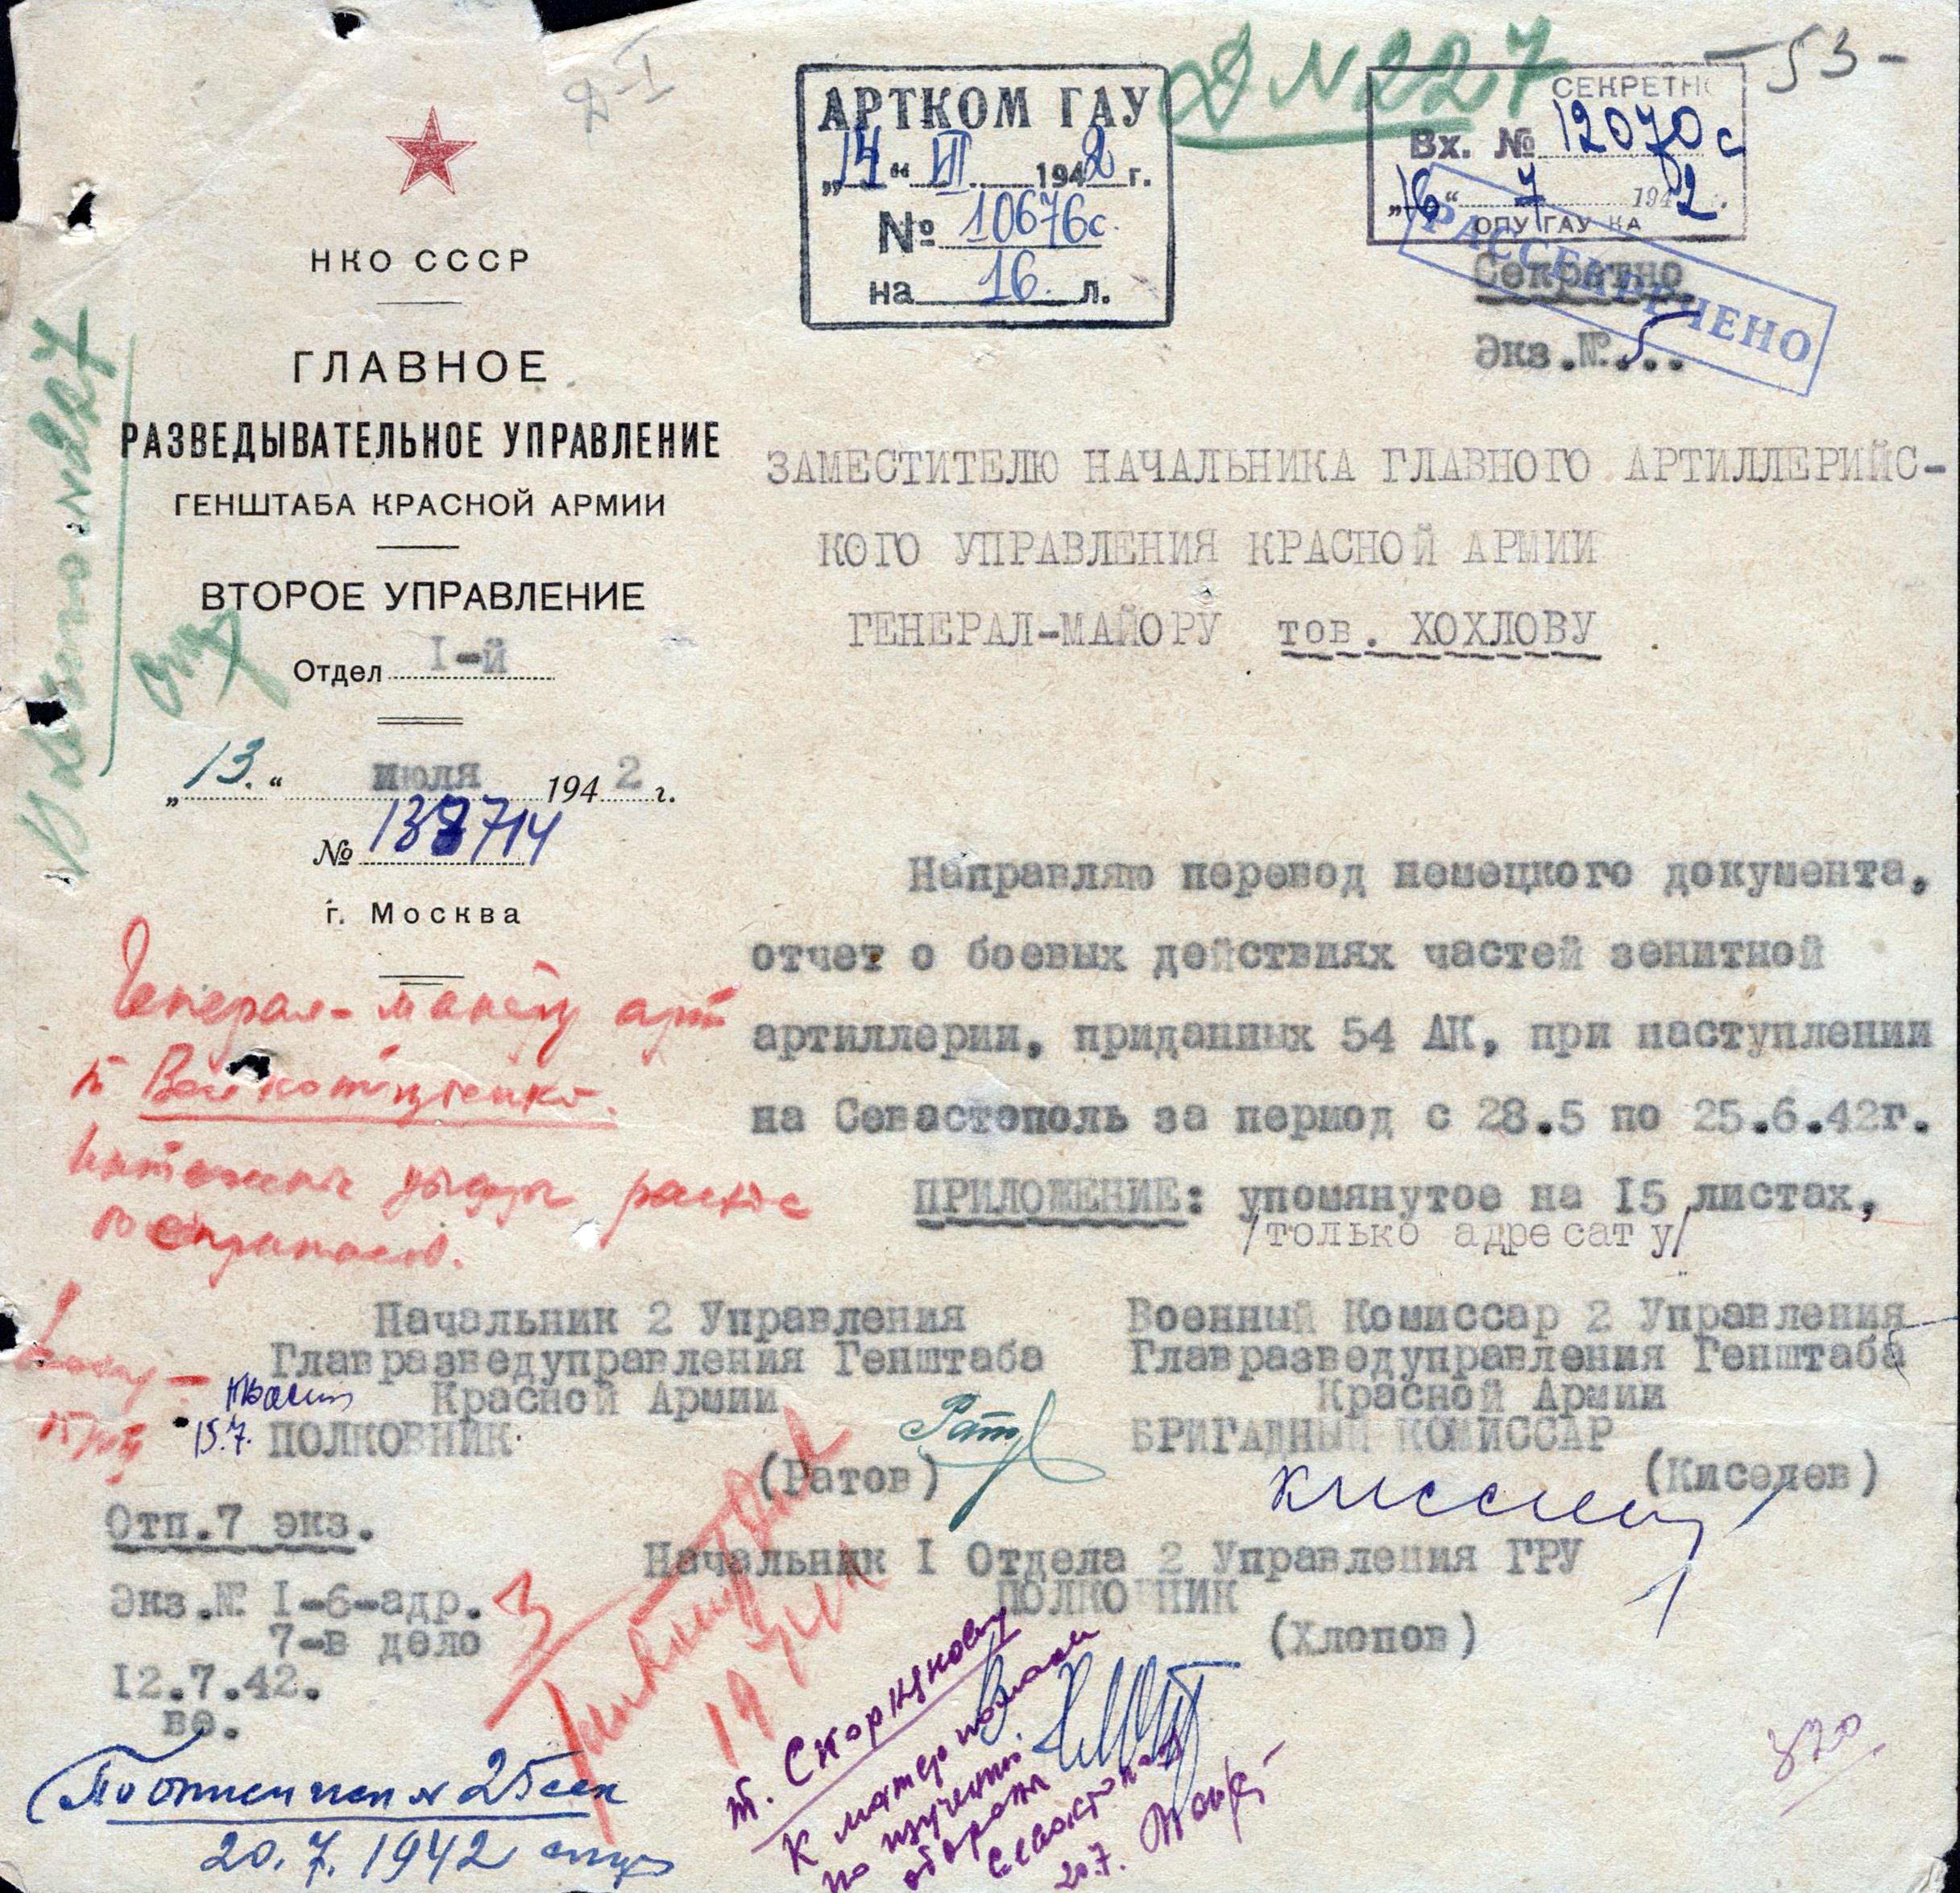 Д №227
- 53 -
Д-I
АРТКОМ ГАУ
„14“ VII 1942 г.
№ 10676с.
на 16 л.
СЕКРЕТНО
Вх. № 12070с
„16“ 7 1942 г.
ОПУ ГАУ КА
РАССЕКРЕЧЕНО
Секратно
Экз.№.5..
НКО СССР
ГЛАВНОЕ
РАЗВЕДЫВАТЕЛЬНОЕ УПРАВЛЕНИЕ
ГЕНШТАБА КРАСНОЙ АРМИИ
ВТОРОЕ УПРАВЛЕНИЕ
Отдел I-й
„13.“ июля 1942 г.
№ 138714
г. Москва
№227
ЗАМЕСТИТЕЛЮ НАЧАЛЬНИКА ГЛАВНОГО АРТИЛЛЕРИЙС-
КОГО УПРАВЛЕНИЯ КРАСНОЙ АРМИИ
ГЕНЕРАЛ-МАЙОРУ тов. ХОХЛОВУ
Направляю перевод немецкого документа,
отчет о боевых действиях частей зенитной
артиллерии, приданных 54 АК, при наступлении
на Севастополь за период с 28.5 по 25.6.42г.
ПРИЛОЖЕНИЕ: упомянутое на I5 листах,
/только адресату/
Генерал-майору арт
Начальник 2 Управления
Главразведуправления Генштаба
Красной Армии
ПОЛКОВНИК
(Ратов)
Военный Комиссар 2 Управления
Главразведуправления Генштаба
Красной Армии
БРИГАДНЫЙ КОМИССАР
(Киселев)
15.7.
Отп.7 экз.
Экз.№ I-6-адр.
7-в дело
I2.7.42.
во.
Начальник I Отдела 2 Управления ГРУ
ПОЛКОВНИК
(Хлопов)
19 VII
т. Скорнякову
К материалам
по изучению
обороны
Севастополя
20.7.
№ 25сек
20.7.1942
320